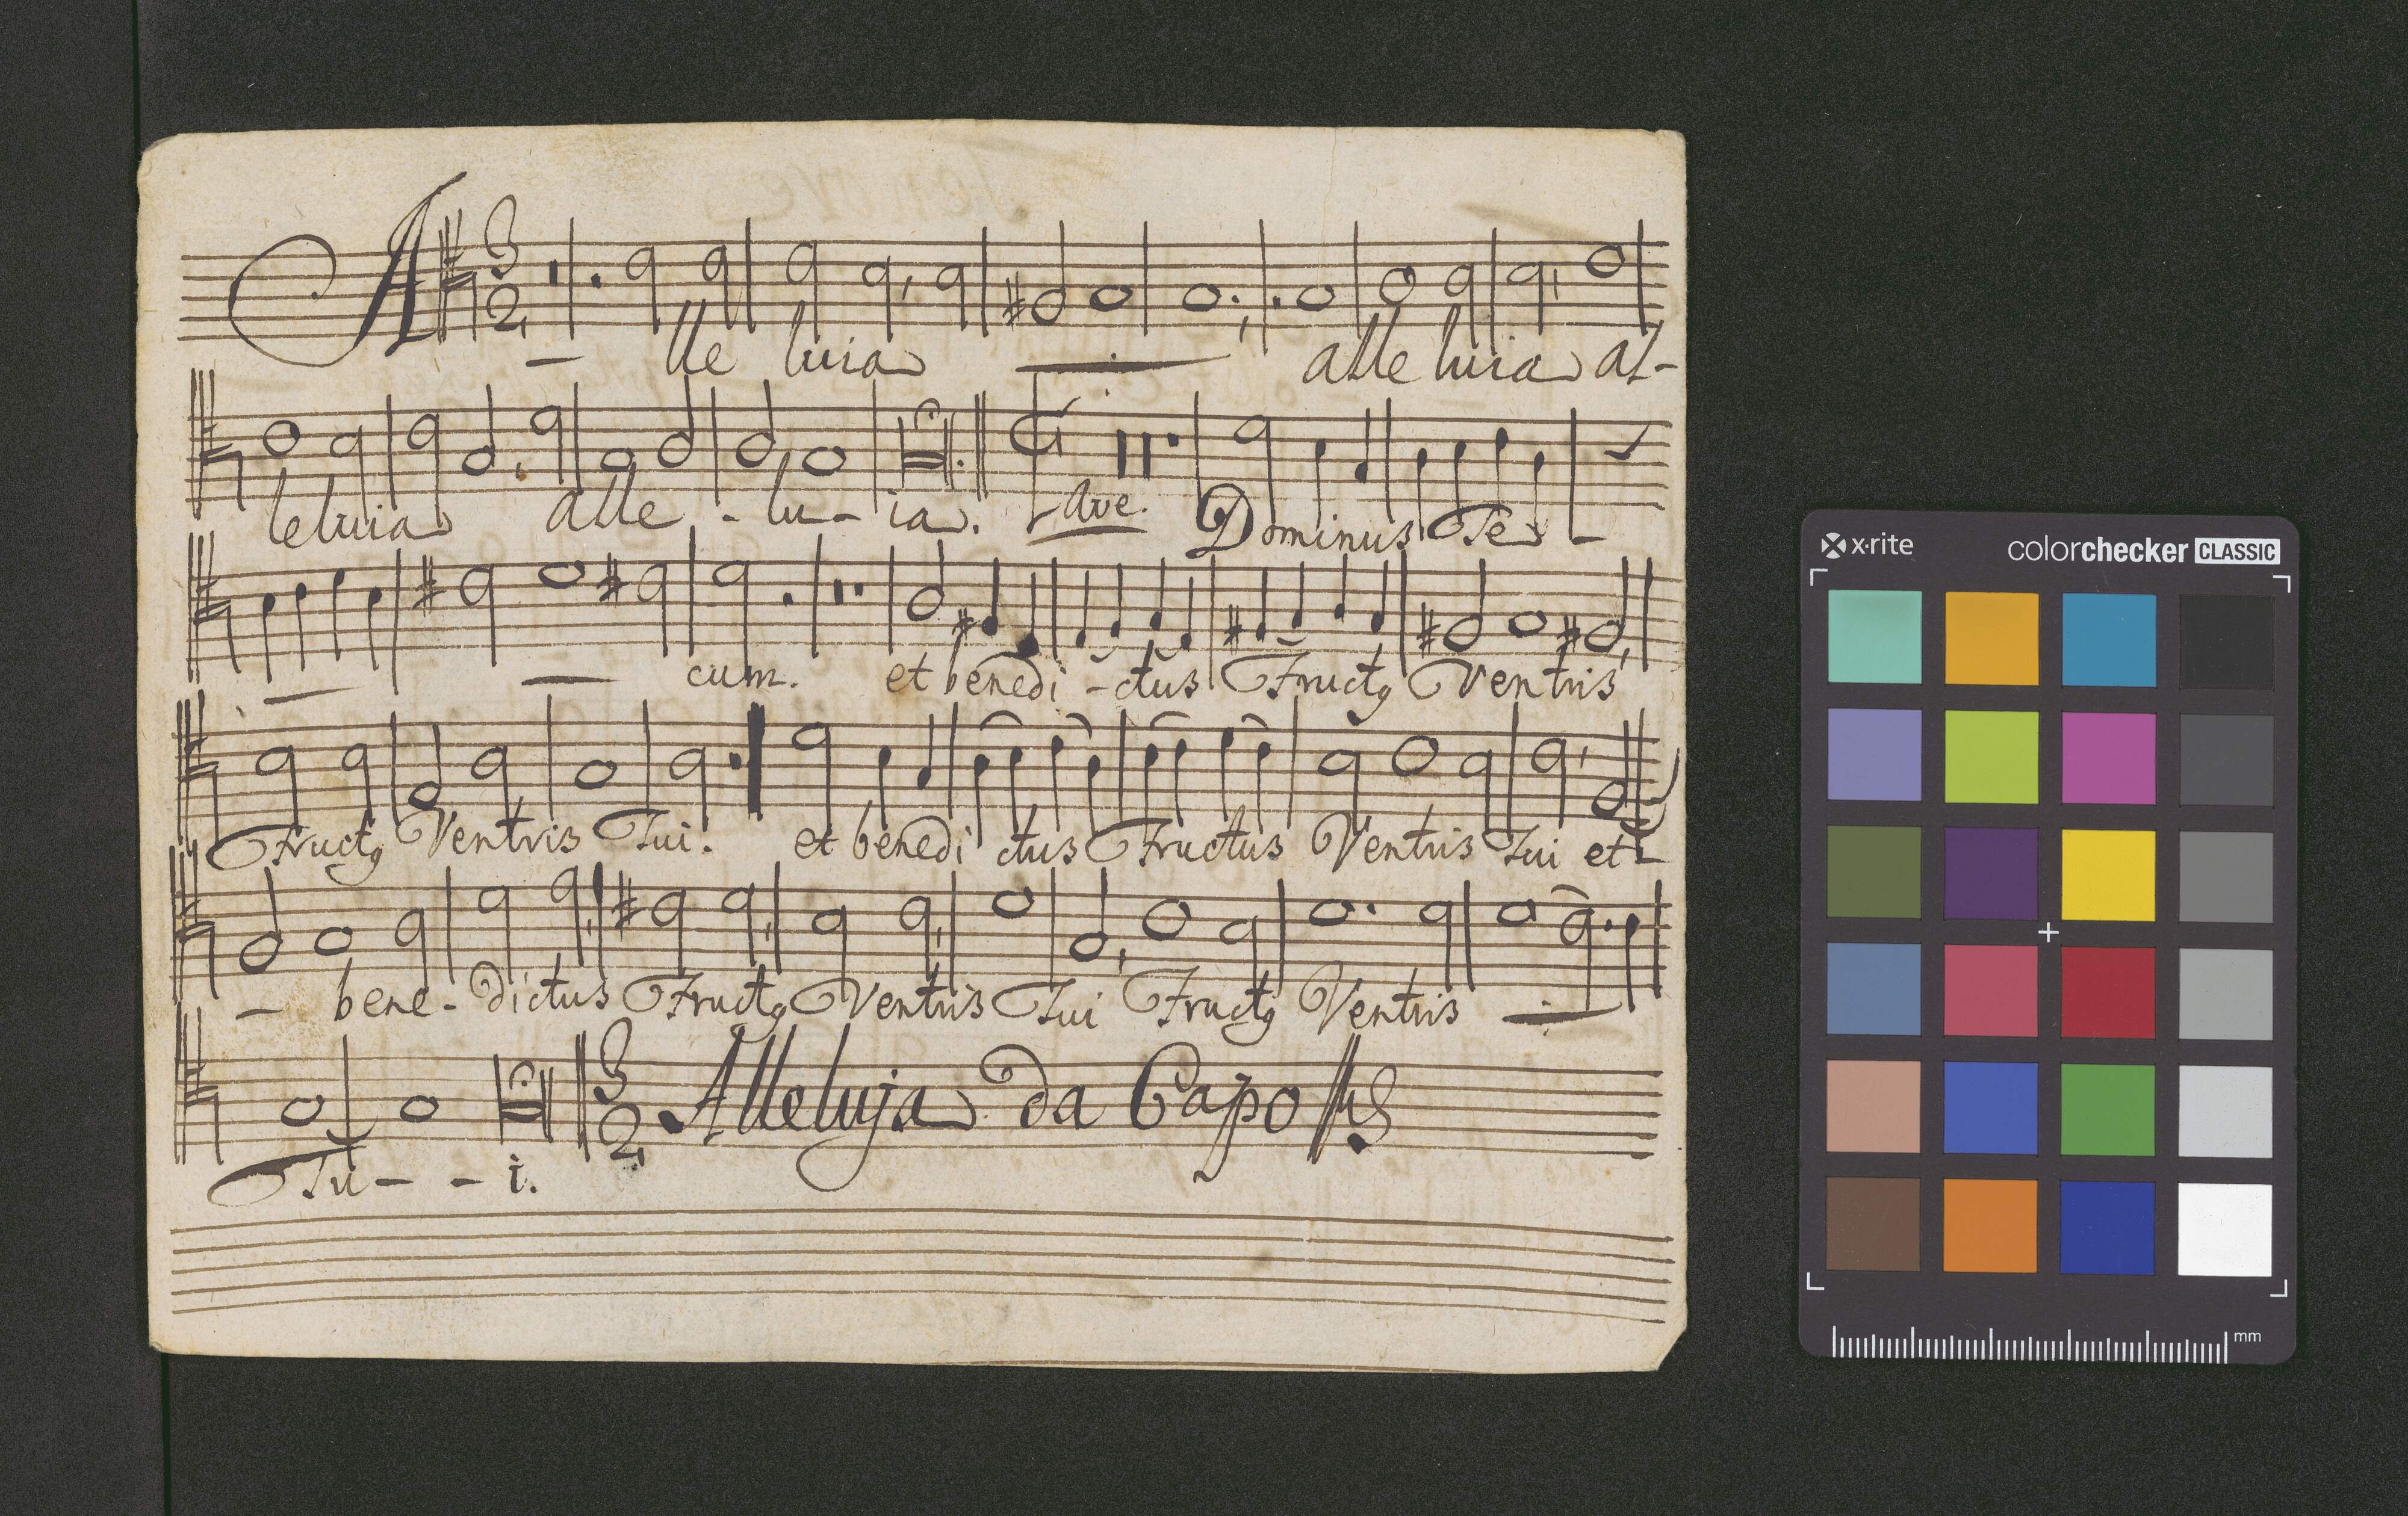 A - lle luia alle luia al-
leluia alle - lu - ia. Ave. Dominus Te -
cum. et benedi - ctus Fructꝯ Ventris
Fructꝯ Ventris Tui. et benedi ctus Fructus Ventris Tui et
- bene - dictus Fructꝯ Ventris Tui Fructꝯ Ventris
Tu - - i.
3 2 Alleluja da Capo
x-rite
colorchecker CLASSIC
mm